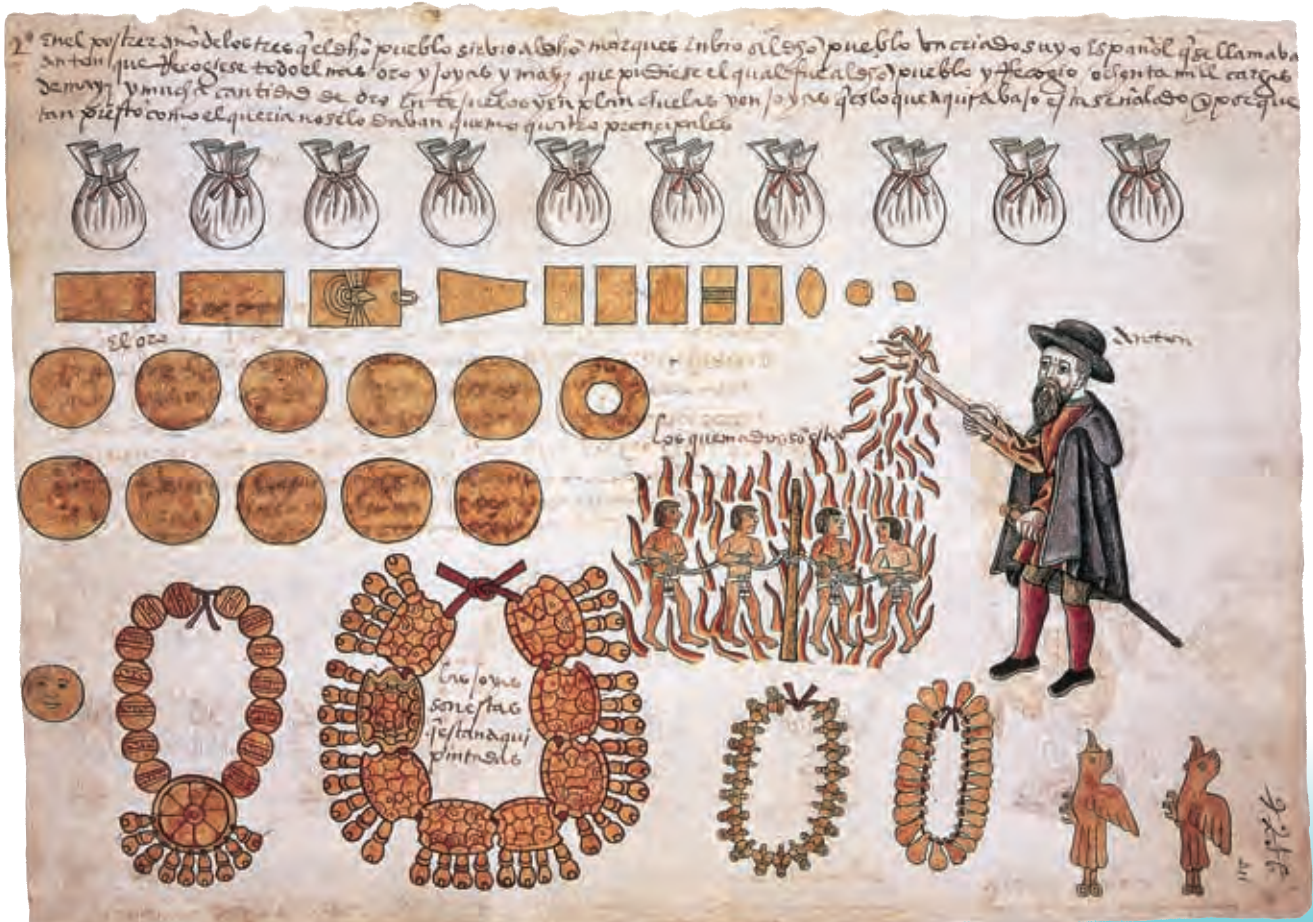 2º Enel postrer año delostres q̃ el dho pueblo sirvio aldho marques Enbio al dho pueblo un criado suyo Español q̃ se llamava
anton que Recogiese todo el mas oro y joyas y mayz que pudiese el qual fue al dho pueblo y Recogio ochenta mill cargas
de mayz y mucha cantidad de oro En tejuelos y en planchuelas y en joyas q̃ es lo que aqui abajo esta señalado y por que
tan presto como el queria no se lo daban quemo quatro prencipales
El oro
anton
los quemados so esto
las joyas
son estas
q̃ estan aqui
pintadas